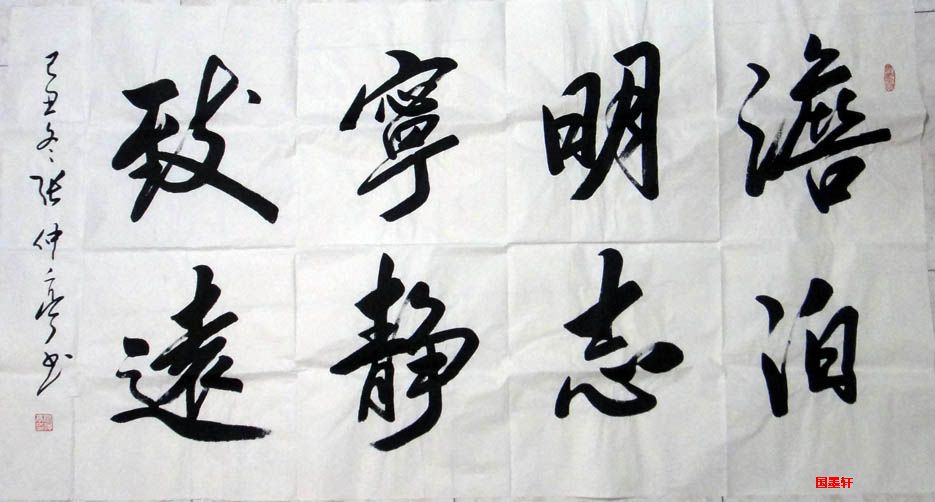 澹泊
明志
寧静
致遠
己丑冬张仲亭书
国墨轩